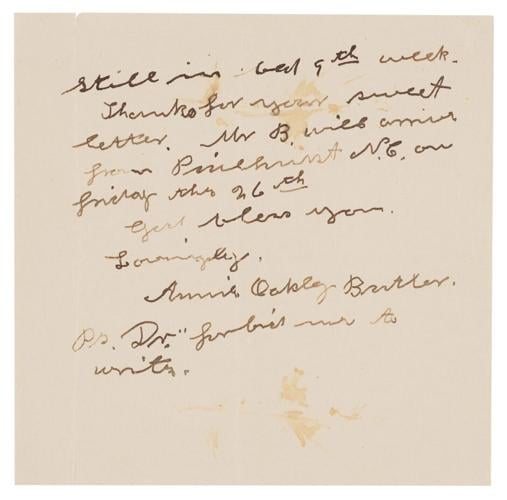 Still in bed 9th week.
Thanks for your sweet
letter. Mr B. will arrive
from Pinehurst N.C. on
friday the 26th
God bless you.
Lovingly.
Annie Oakley Butler.
Ps. Dr." forbid me to
write.